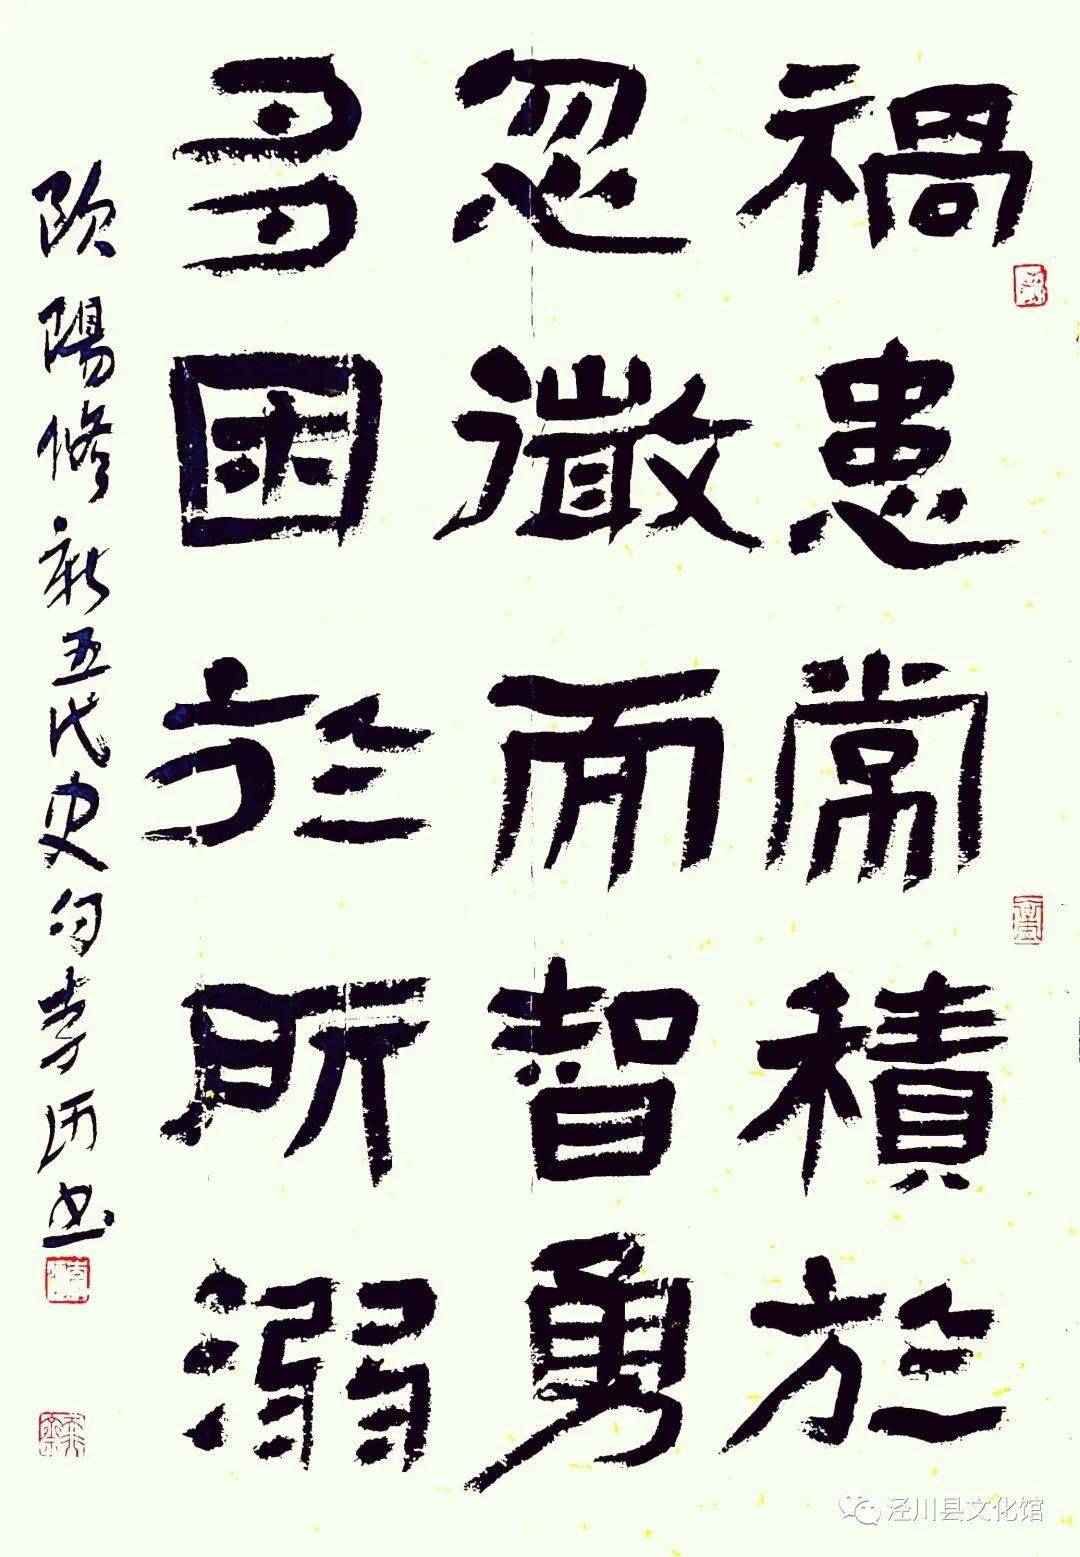 禍患常積於
忽微而智勇
多困於所溺
欧陽修新五代史句李书
泾川县文化馆